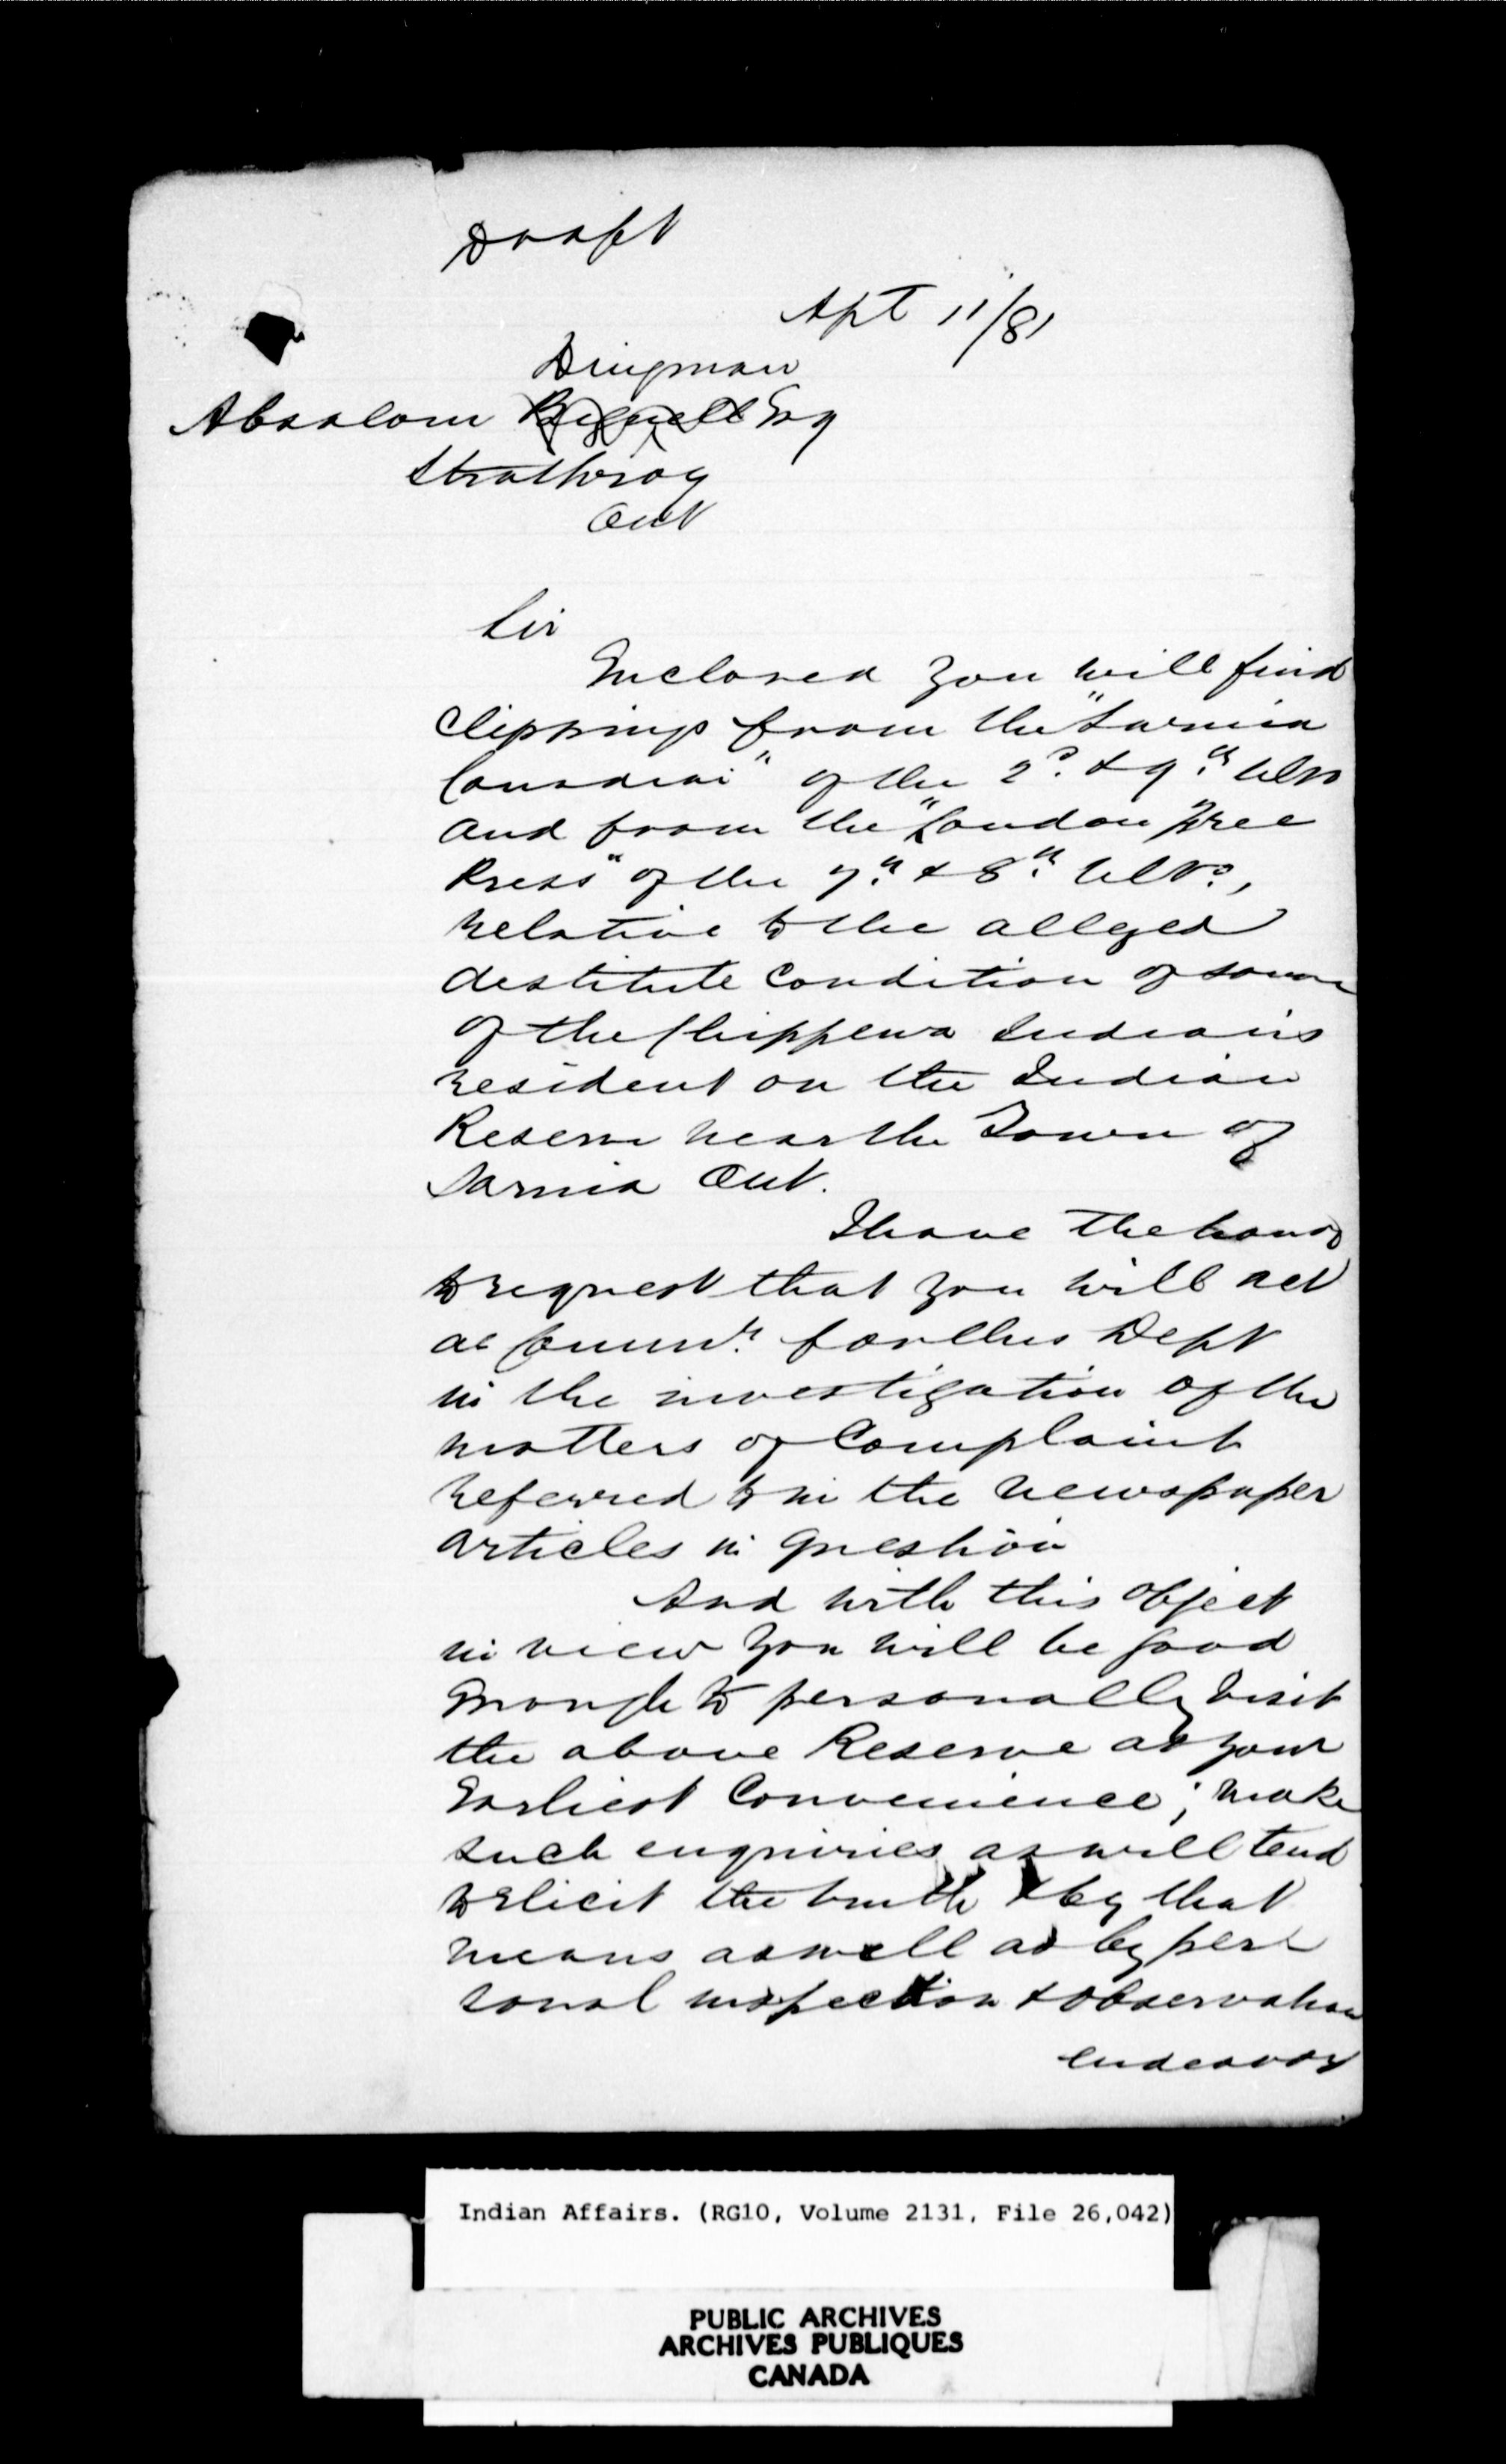 Draft
Apl 11/81
Dingman
Absalom Bignell Esq
Strathroy
Ont
Sir
Enclosed you will find
clippings from the "Sarnia
Canadian" of the 2d. & 9th Ulto
and from the "London Free
Press" of the 7th & 8th Ulto,
relative to the alleged
destitute condition of some
of the Chippewa Indians
resident on the Indian
Reserve near the Town of
Sarnia Ont.
I have the honor
to request that you will act
as Commr. for this Dept
in the investigation of the
matters of Complaint
referred to in the newspaper
articles in question
And with this object
in view you will be good
enough to personally visit
the above Reserve at your
Earliest Convenience; make
such enquiries as will tend
to elicit the truth & by that
means as well as by per
sonal inspection & observation
endeavor
Indian Affairs. (RG10, Volume 2131, File 26,042)
PUBLIC ARCHIVES
ARCHIVES PUBLIQUES
CANADA